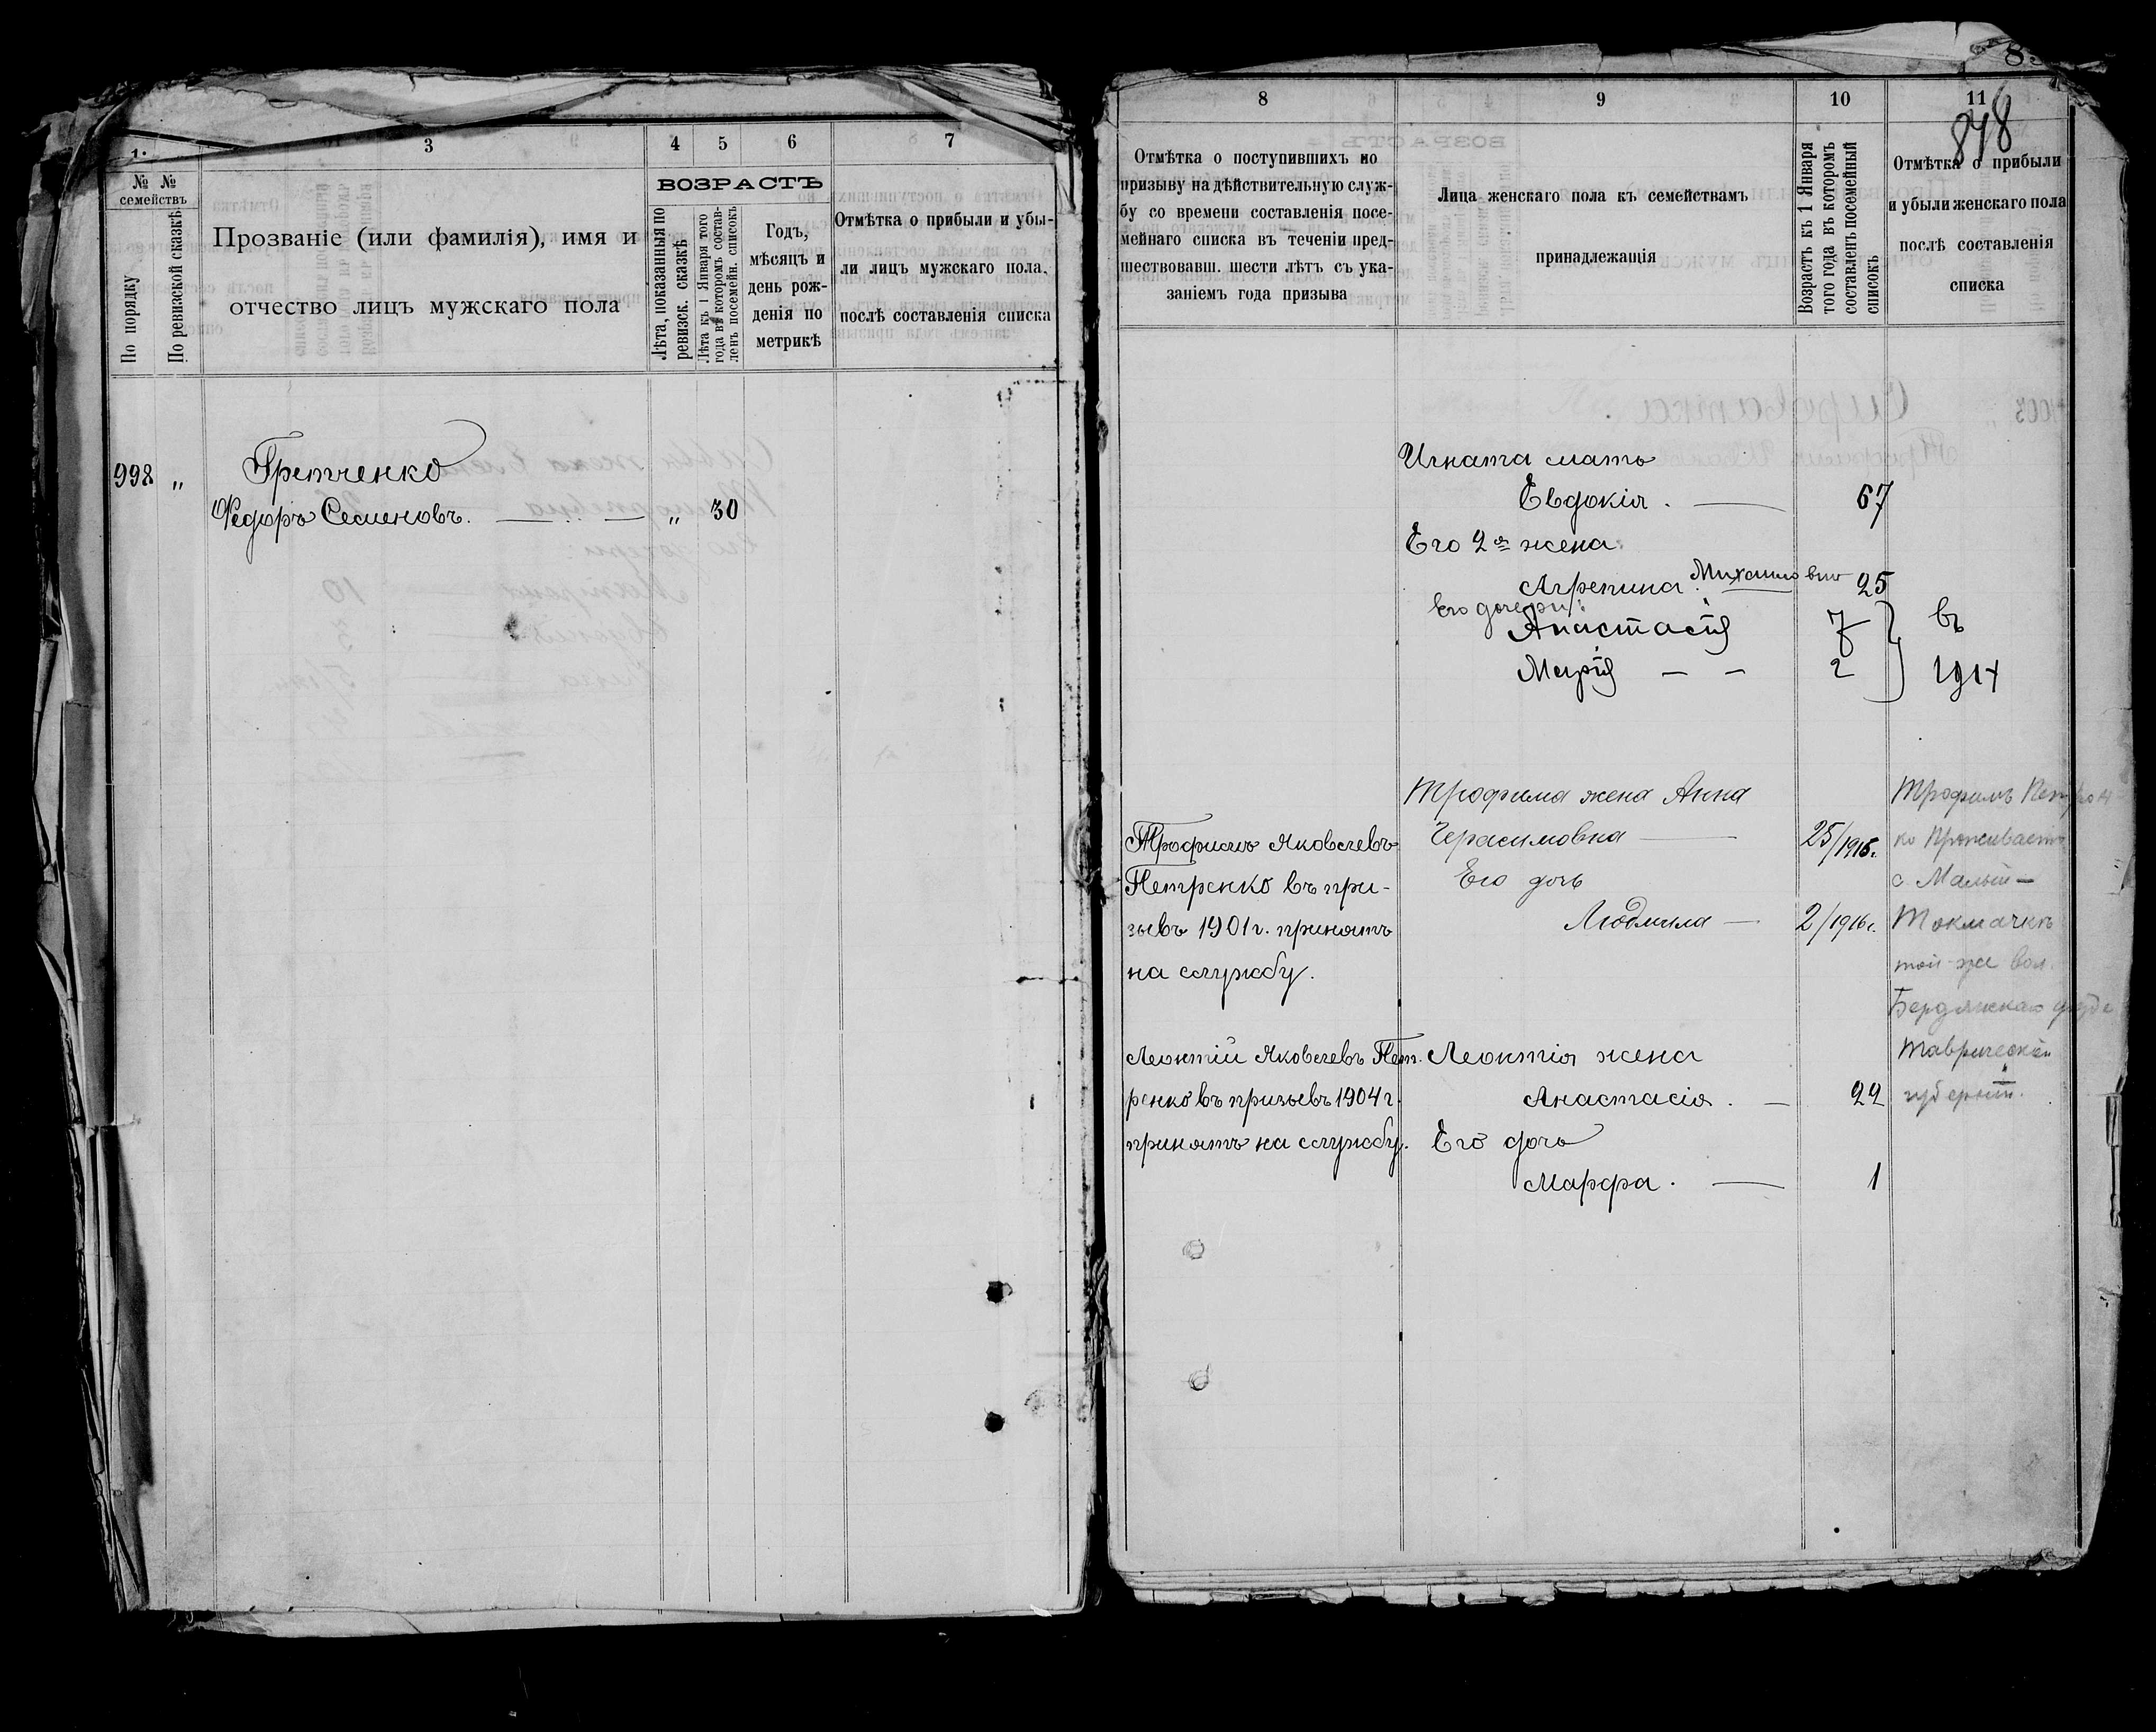 1.
3
4
5
6
7
№ № семействъ
По порядку
По ревизской сказкѣ
Прозваніе (или фамилія), имя и
отчество лицъ мужскаго пола
ВОЗРАСТЪ
Лѣта, показанныя по
ревизск. сказкѣ
Лѣта къ 1 Января того
года въ которомъ состав-
ленъ посемейн. списокъ
Годъ,
мѣсяцъ и
день рож-
денія по
метрикѣ
Отмѣтка о прибыли и убы-
ли лицъ мужскаго пола,
послѣ составленія списка
998 „ Гретченко
Федоръ Семеновъ. — „ 30
8
9
10
11
848
Отмѣтка о поступившихъ по
призыву на дѣйствительную служ-
бу со времени составленія посе-
мейнаго списка въ теченіи пред-
шествовавш. шести лѣтъ съ ука-
заніемъ года призыва
Лица женскаго пола къ семействамъ
принадлежащія
Возрастъ къ 1 Января
того года въ которомъ
составленъ посемейный
списокъ
Отмѣтка о прибыли
и убыли женскаго пола
послѣ составленія
списка
Игната мать
Евдокія. — 67
Его 2ая жена
Агрепина. Михаиловна 25
Его дочери:
Анастасія 7
Марія — — 2
въ
1914
Трофима жена Анна
Герасимовна — 25/1916г.
Его дочь
Людмила — 2/1916г.
Трофимъ Яковлевъ
Петренко въ при-
зывъ 1901г. принятъ
на службу.
Трофимъ Петрен
ко проживаетъ
с. Малый —
Токмачкъ
той-же вол.
Бердянскаго уѣзда
Таврической
губерніи.
Леонтій Яковлевъ Пет.
ренко въ призывъ 1904г.
принятъ на службу.
Леонтія жена
Анастасія. — 22
Его дочь
Марфа. — 1